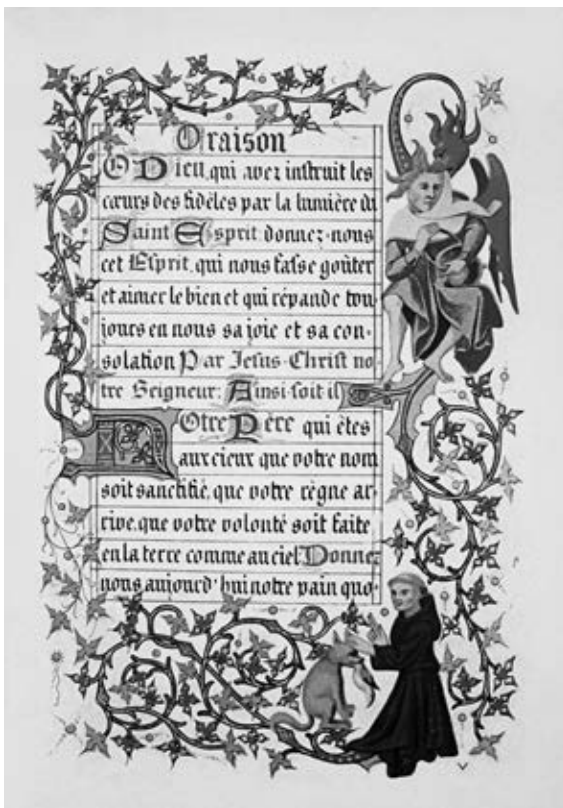 Oraison
O Dieu, qui avez instruit les
cœurs des fidèles par la lumière du
Saint Esprit donnez-nous
cet Esprit, qui nous fasse goûter
et aimer le bien et qui répande tou-
jours en nous sa joie et sa con-
solation Par Jesus-Christ no
tre Seigneur: Ainsi-soit il
Notre Père qui êtes
aux cieux que votre nom
soit sanctifié, que votre règne ar-
rive, que votre volonté soit faite
en la terre comme au ciel Donnez
nous aujourd'hui notre pain quo-